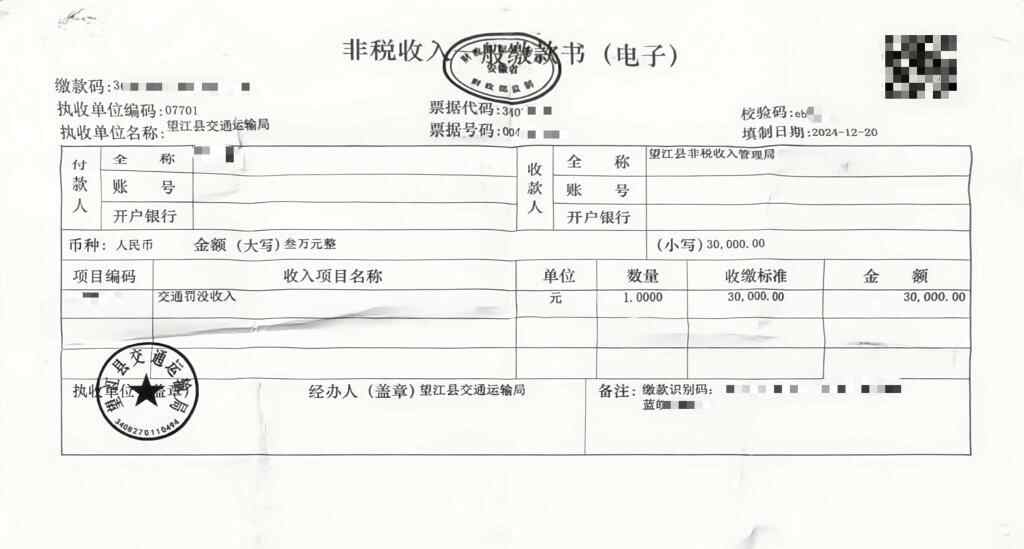 非税收入一般缴款书（电子）
安徽省
财政部监制
缴款码:3
执收单位编码:07701
票据代码:340
校验码:eb
执收单位名称:望江县交通运输局
票据号码:004
填制日期:2024-12-20
付款人
全 称
收款人
全 称
望江县非税收入管理局
账 号
账 号
开户银行
开户银行
币种: 人民币
金额（大写）叁万元整
（小写）30,000.00
项目编码 收入项目名称 单位 数量 收缴标准 金 额
交通罚没收入 元 1.0000 30,000.00 30,000.00
执收单位（盖章）
望江县交通运输局
3408270110494
经办人（盖章）望江县交通运输局
备注: 缴款识别码:
蓝